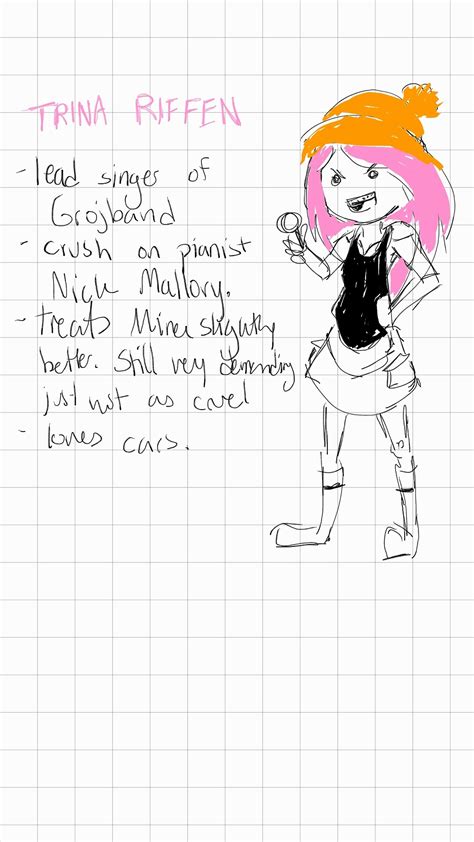 TRINA RIFFEN
- lead singer of
Grojband
- crush on pianist
Nick Mallory.
- treats Mina slightly
better. Still very demanding
just not as cruel
- loves cars.